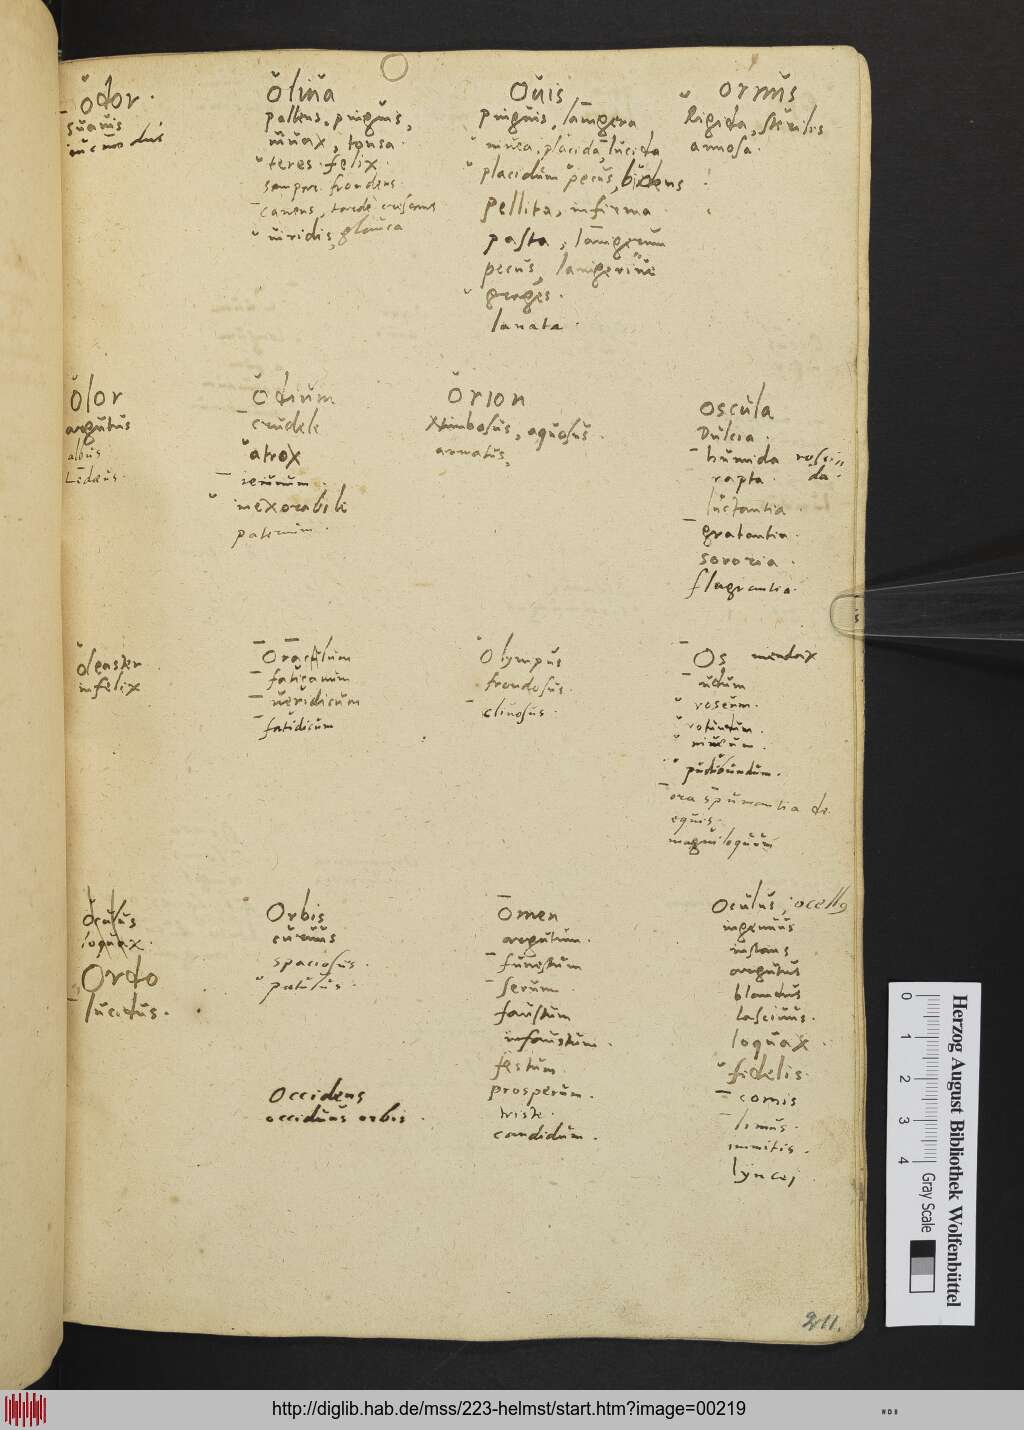 Odor.
suavis
Oliva
pallens, pinguis,
vivax, tonsa.
teres. felix.
semper frondens.
canens, tarde crescens
viridis, glauca
Ovis
pinguis, lanigera
nivea, placida, lucida
placidum pecus, bidens
pellita, infirma.
pasta, lanigerum
pecus, lanigerive
greges.
lanata.
Ornus
Rigida, sterilis
annosa.
Olor
argutus
albus
Ledæus.
Odium
crudele
atrox
inexorabile
paternum.
Orion
nimbosus, aquosus.
armatus,
oscula
Dulcia.
humida rosci=
rapta. da.
luctantia.
gratantia.
sororia.
flagrantia.
oleaster
infelix
Oraculum
faticanum
veridicum
fatidicum
Olympus
frondosus
clivosus.
Os mendax
udum
roseum.
rotundum.
niveum.
pudibundum.
ora spumantia de
equis.
magniloquum
Oculus
loquax.
Ordo
lucidus.
Orbis
curvus
spaciosus.
patulus.
Occidens
occiduus orbis.
Omen
argutum.
funestum
serum
faustum
infaustum.
festum.
prosperum.
triste.
candidum.
Oculus, ocellus
ingenuus
instans
argutus
blandus
lascivus.
loquax.
fidelis.
comis
limus.
immitis.
lyncei
211.
Herzog August Bibliothek Wolfenbüttel
0 1 2 3 4 Gray Scale
http://diglib.hab.de/mss/223-helmst/start.htm?image=00219